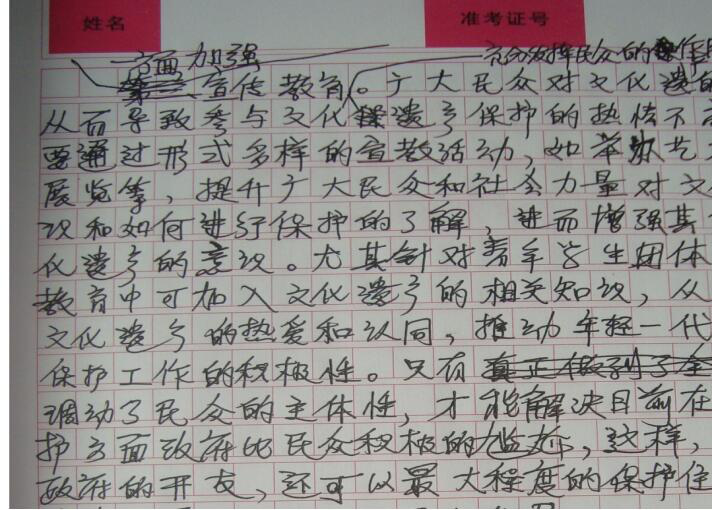 姓名 准考证号
一方面加强 充分发挥民众的作用
宣传教育。广大民众对文化遗的
从而导致参与文化遗产保护的热情不高
要通过形式多样的宣教活动，如举办艺
展览等，提升广大民众和社会力量对文
识和如何进行保护的了解，进而增强其
化遗产的意识。尤其针对青年学生团体
教育中可加入文化遗产的相关知识，从
文化遗产的热爱和认同，推动年轻一代
保护工作的积极性。只有真正做到了全
调动了民众的主体性，才能解决目前在
护方面政府比民众积极的尴尬，这样，
政府的开支，还可以最大程度的保护住